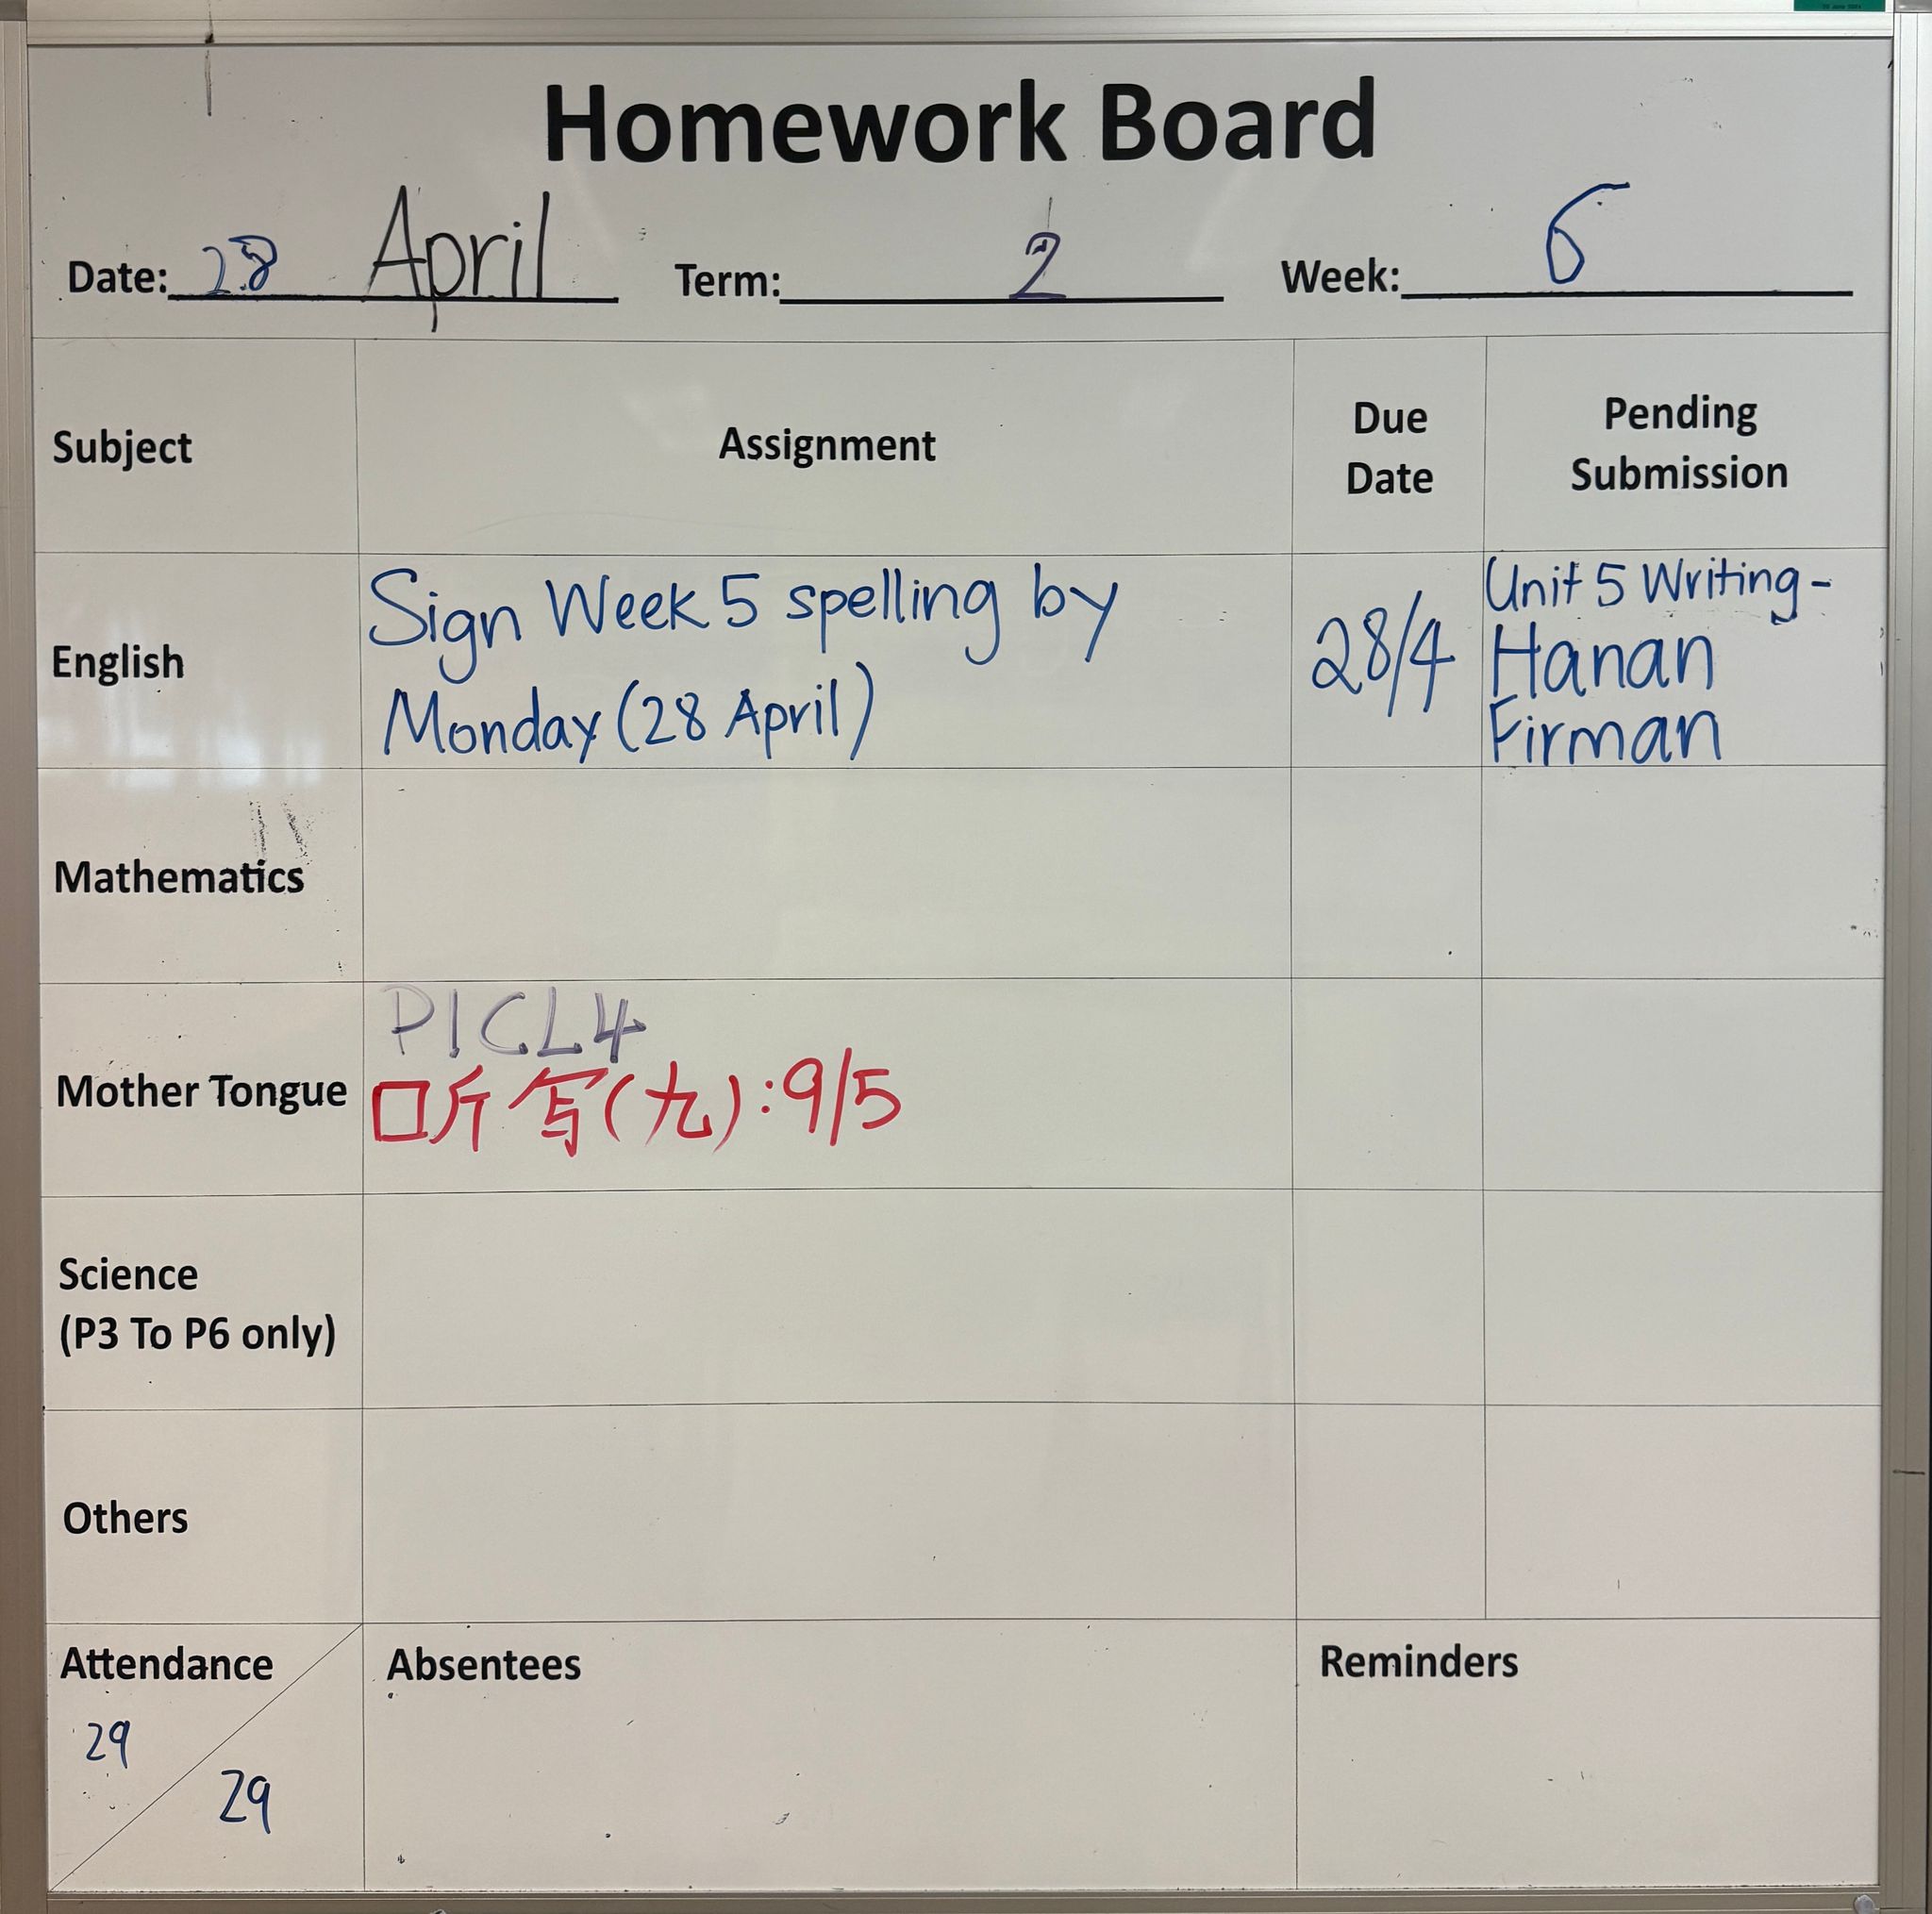 Homework Board
Date: 28 April Term: 2 Week: 6
Subject Assignment Due Date Pending Submission
English
Sign Week 5 spelling by
Monday (28 April)
28/4
Unit 5 Writing-
Hanan
Firman
Mathematics
Mother Tongue
P1CL4
听写(九):9/5
Science
(P3 To P6 only)
Others
Attendance
29
29
Absentees
Reminders